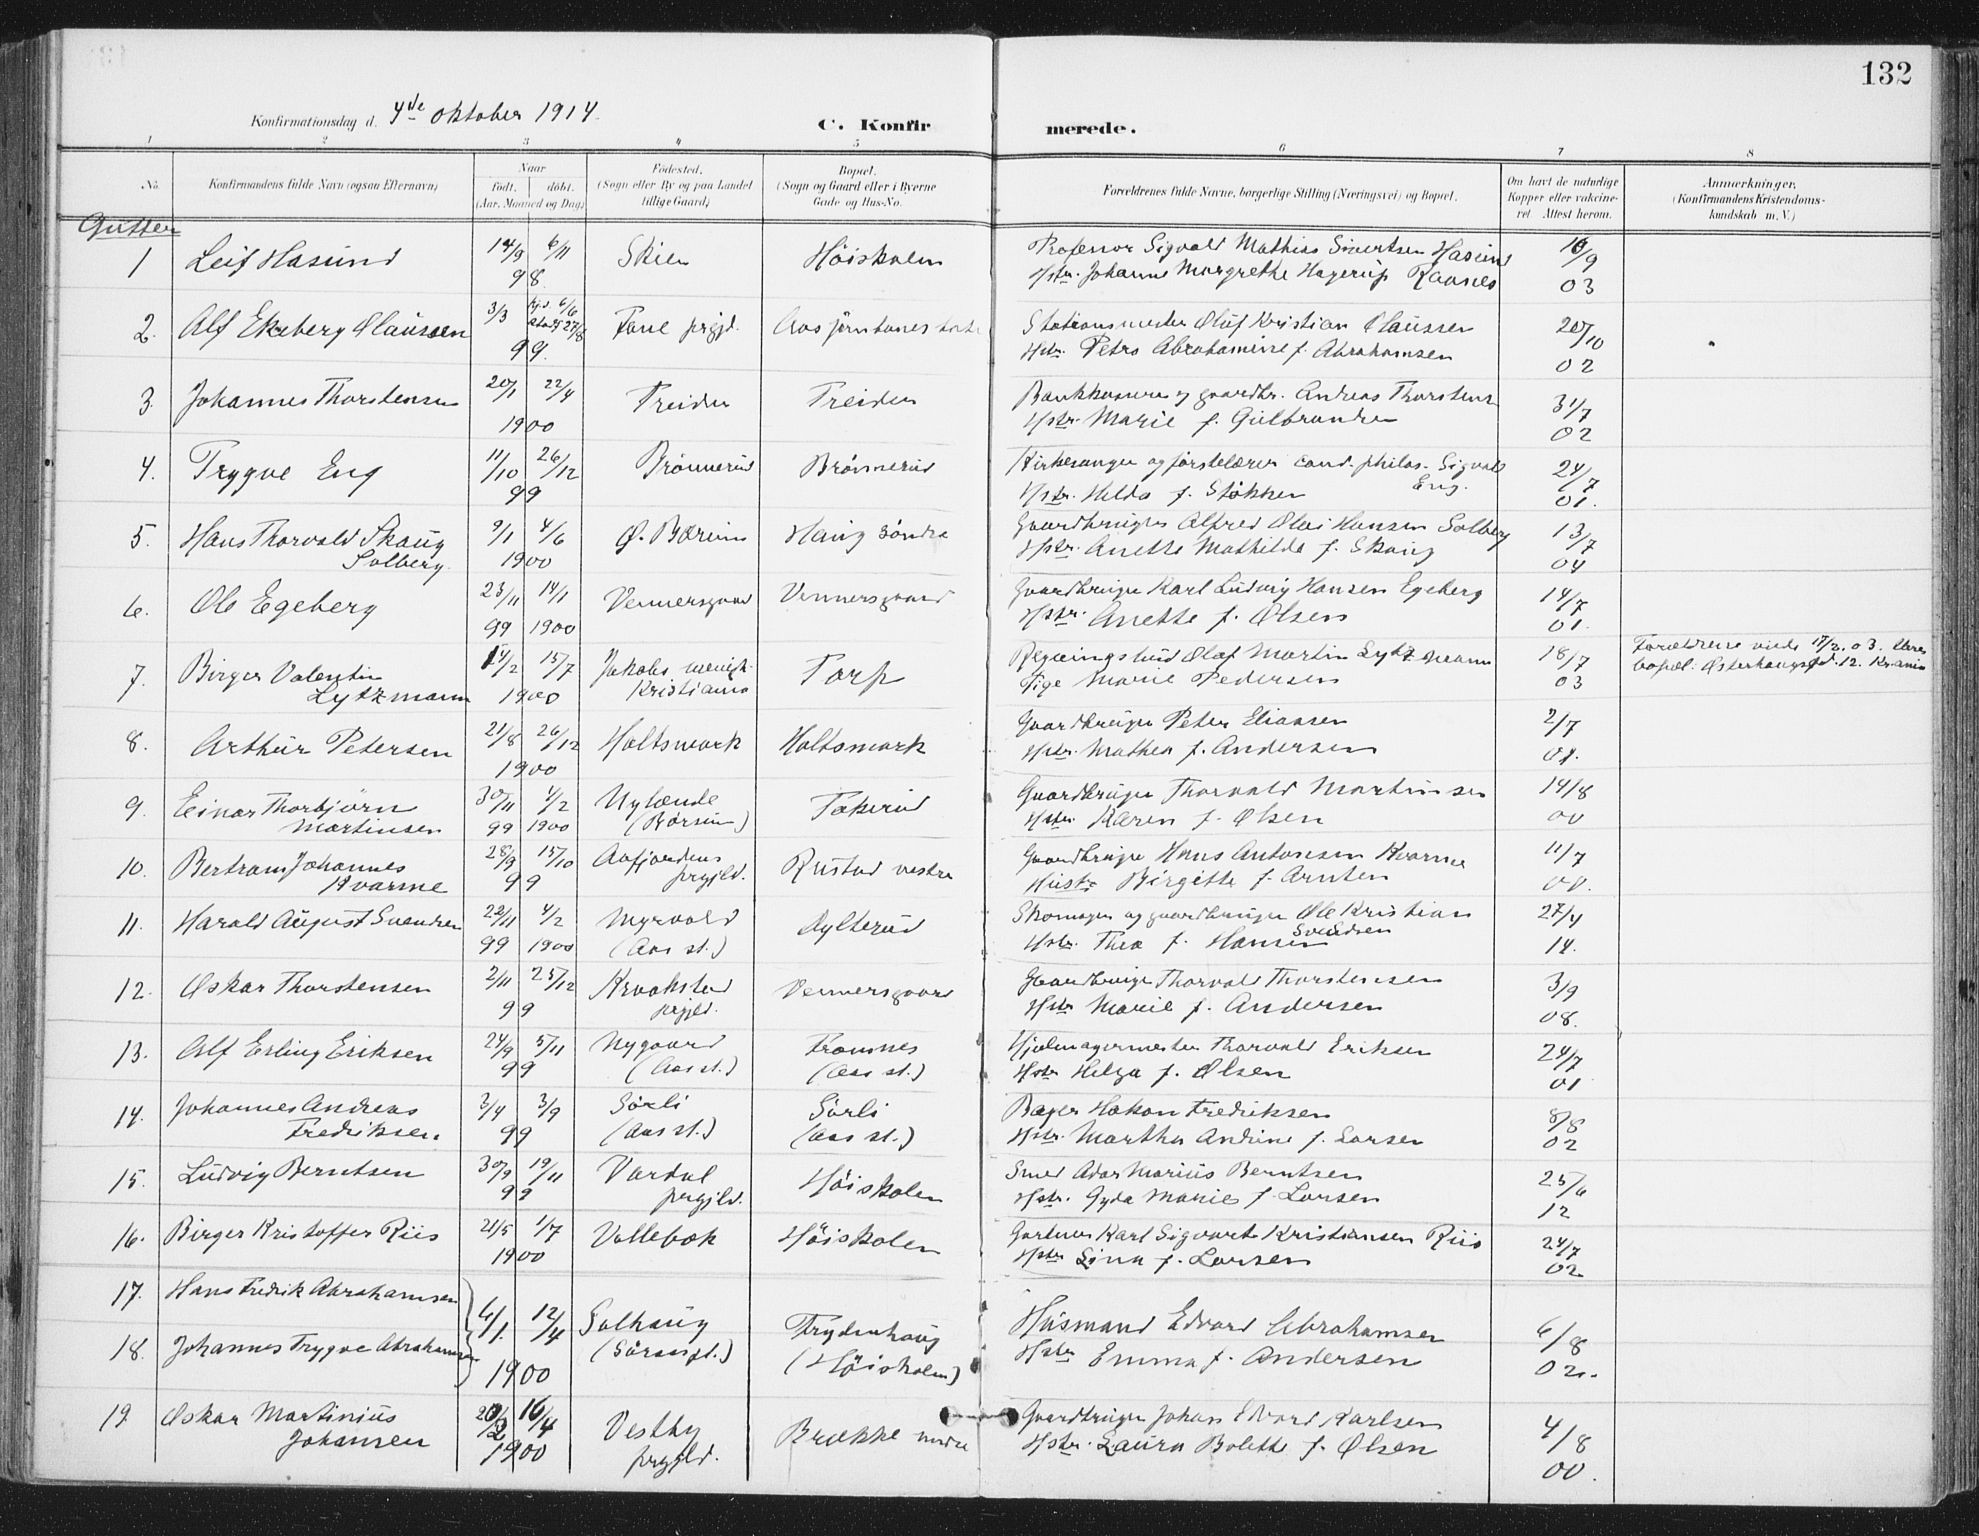 132
Konfirmationsdag d. 4de oktober 1914.
C. Konfirmerede.
1 2 3 4 5 6 7 8
No. Konfirmandens fulde Navn (ogsaa Efternavn) Naar født, døbt. (Aar, Maaned og Dag) Fødested, (Sogn eller By og paa Landet tillige Gaard) Bopæl. (Sogn og Gaard eller i Byerne Gade og Hus-No. Forældrenes fulde Navne, borgerlige Stilling (Næringsvei) og Bopæl. Om havt de naturlige Kopper eller vaccineret. Attest herom. Anmærkninger, (Konfirmandens Kristendomskundskab m. V.)
Gutter
1 Leif Hasund 14/9 6/11 98. Skien Høiskolen Professor Sigvald Mathias Hasund
Hstr. Johanne Margrethe Hagerup 10/9 03
2. Alf Ekeberg Olaussen 3/3 99. Fane prgjd. Stationsmester Oluf Kristian Olaussen
Hstr. Petra Abrahamine f. Abrahamsen 20/10 02
3. Johannes Thorstensen 20/1 22/4 1900 Treider Treider Bankkasserer og gaardbr. Andreas Thorstensen
Hstr. Marie f. Gulbrandsen 31/7 02
4. Trygve Eng 11/10 26/12 99 Brønnerud Brønnerud Kirkesanger og førstelærer cand. philos. Sigvald Eng.
Hstr. Hilda f. Støkken 24/7 01.
5. Hans Thorvald Skaug Solberg. 9/1 4/6 1900 Ø. Bærum Haug søndre Gaardbruger Alfred Olai Hansen Solberg
Hstr. Anette Mathilde f. Skaug 13/7 04
6. Ole Egeberg 23/11 99 14/1 1900 Vennersgaard Vennersgaard Gaardbruger Karl Ludvig Hansen Egeberg
Hstr. Anette f. Olsen 14/7 01.
7. Birger Valentin Lytzmann 14/2 15/7 1900 Jakobs menigh. Kristiania Torp Olaf Martin Lytzmann
Pige Marie Pedersen 18/7 03 Forældrene viede 17/2.03. Deres bopæl: Østerhausgd. 12. Kr.ania
8. Arthur Petersen 21/8 26/12 1900 Holtsmark Holtsmark Gaardbruger Peter Eliassen
Hstr. Mathea f. Andersen 2/7 01.
9. Einar Thorbjørn Martinsen 30/11 99 4/2 1900 Nylænde Gaardbruger Thorvald Martinsen
Hstr. Karen f. Olsen 14/8 00
10. Bertram Johannes Kvarme 28/9 15/10 99 Aafjordens prgjld. Rustad vestre Gaardbruger Hans Antonsen Kvarme
Hustr. Birgitte f. Arntsen 11/7 00.
11. Harald August Svendsen 22/11 99 4/2 1900 Myrvold (Aas st.) Skomager og gaardbruger Ole Kristian Svendsen
Hstr. Thea f. Hansen 27/4 14.
12. Oskar Thorstensen 2/11 25/12 99 Kraakstad prgjld. Vennersgaard Gaardbruger Thorvald Thorstensen
Hstr. Marie f. Andersen 3/9 08.
13. Alf Erling Eriksen 24/9 5/11 99 Nygaard (Aas st.) Framnes (Aas st.) Hjulmagermester Thorvald Eriksen
Hstr. Helga f. Olsen 24/7 01
14. Johannes Andreas Fredriksen. 3/4 3/9 99 Sørli (Aas st.) Sørli (Aas st.) Bager Hakon Fredriksen
Hstr. Martha Andrine f. Larsen 8/8 02
15. Ludvig Berntsen 30/9 19/11 99 Vardal prgjld. Høiskolen Smed Marius Berntsen
Hstr. Gyda Marie f. Larsen 25/6 12
16. Birger Kristoffer Riis 21/5 1/7 1900 Vollebæk Høiskolen Gartner Karl Sigvart Kristiansen Riis
Hstr. Lina f. Larsen 24/7 02
17. Hans Fredrik Abrahamsen
18. Johannes Trygve Abrahamsen 6/1 12/4 1900 Solhaug Frydenhaug (Høiskolen) Husmand Edvard Abrahamsen
Hstr. Emma f. Andersen 6/8 02.
19 Oskar Martinius Johansen 20/2 16/4 1900 Vestby prgjld. Brække nedre Gaardbruger Johan Edvard Karlsen
Hstr. Laura Bolette f. Olsen 4/8 00.